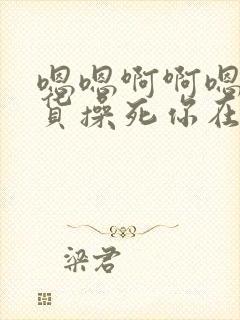 嗯嗯啊啊嗯
货操死你在
梁君